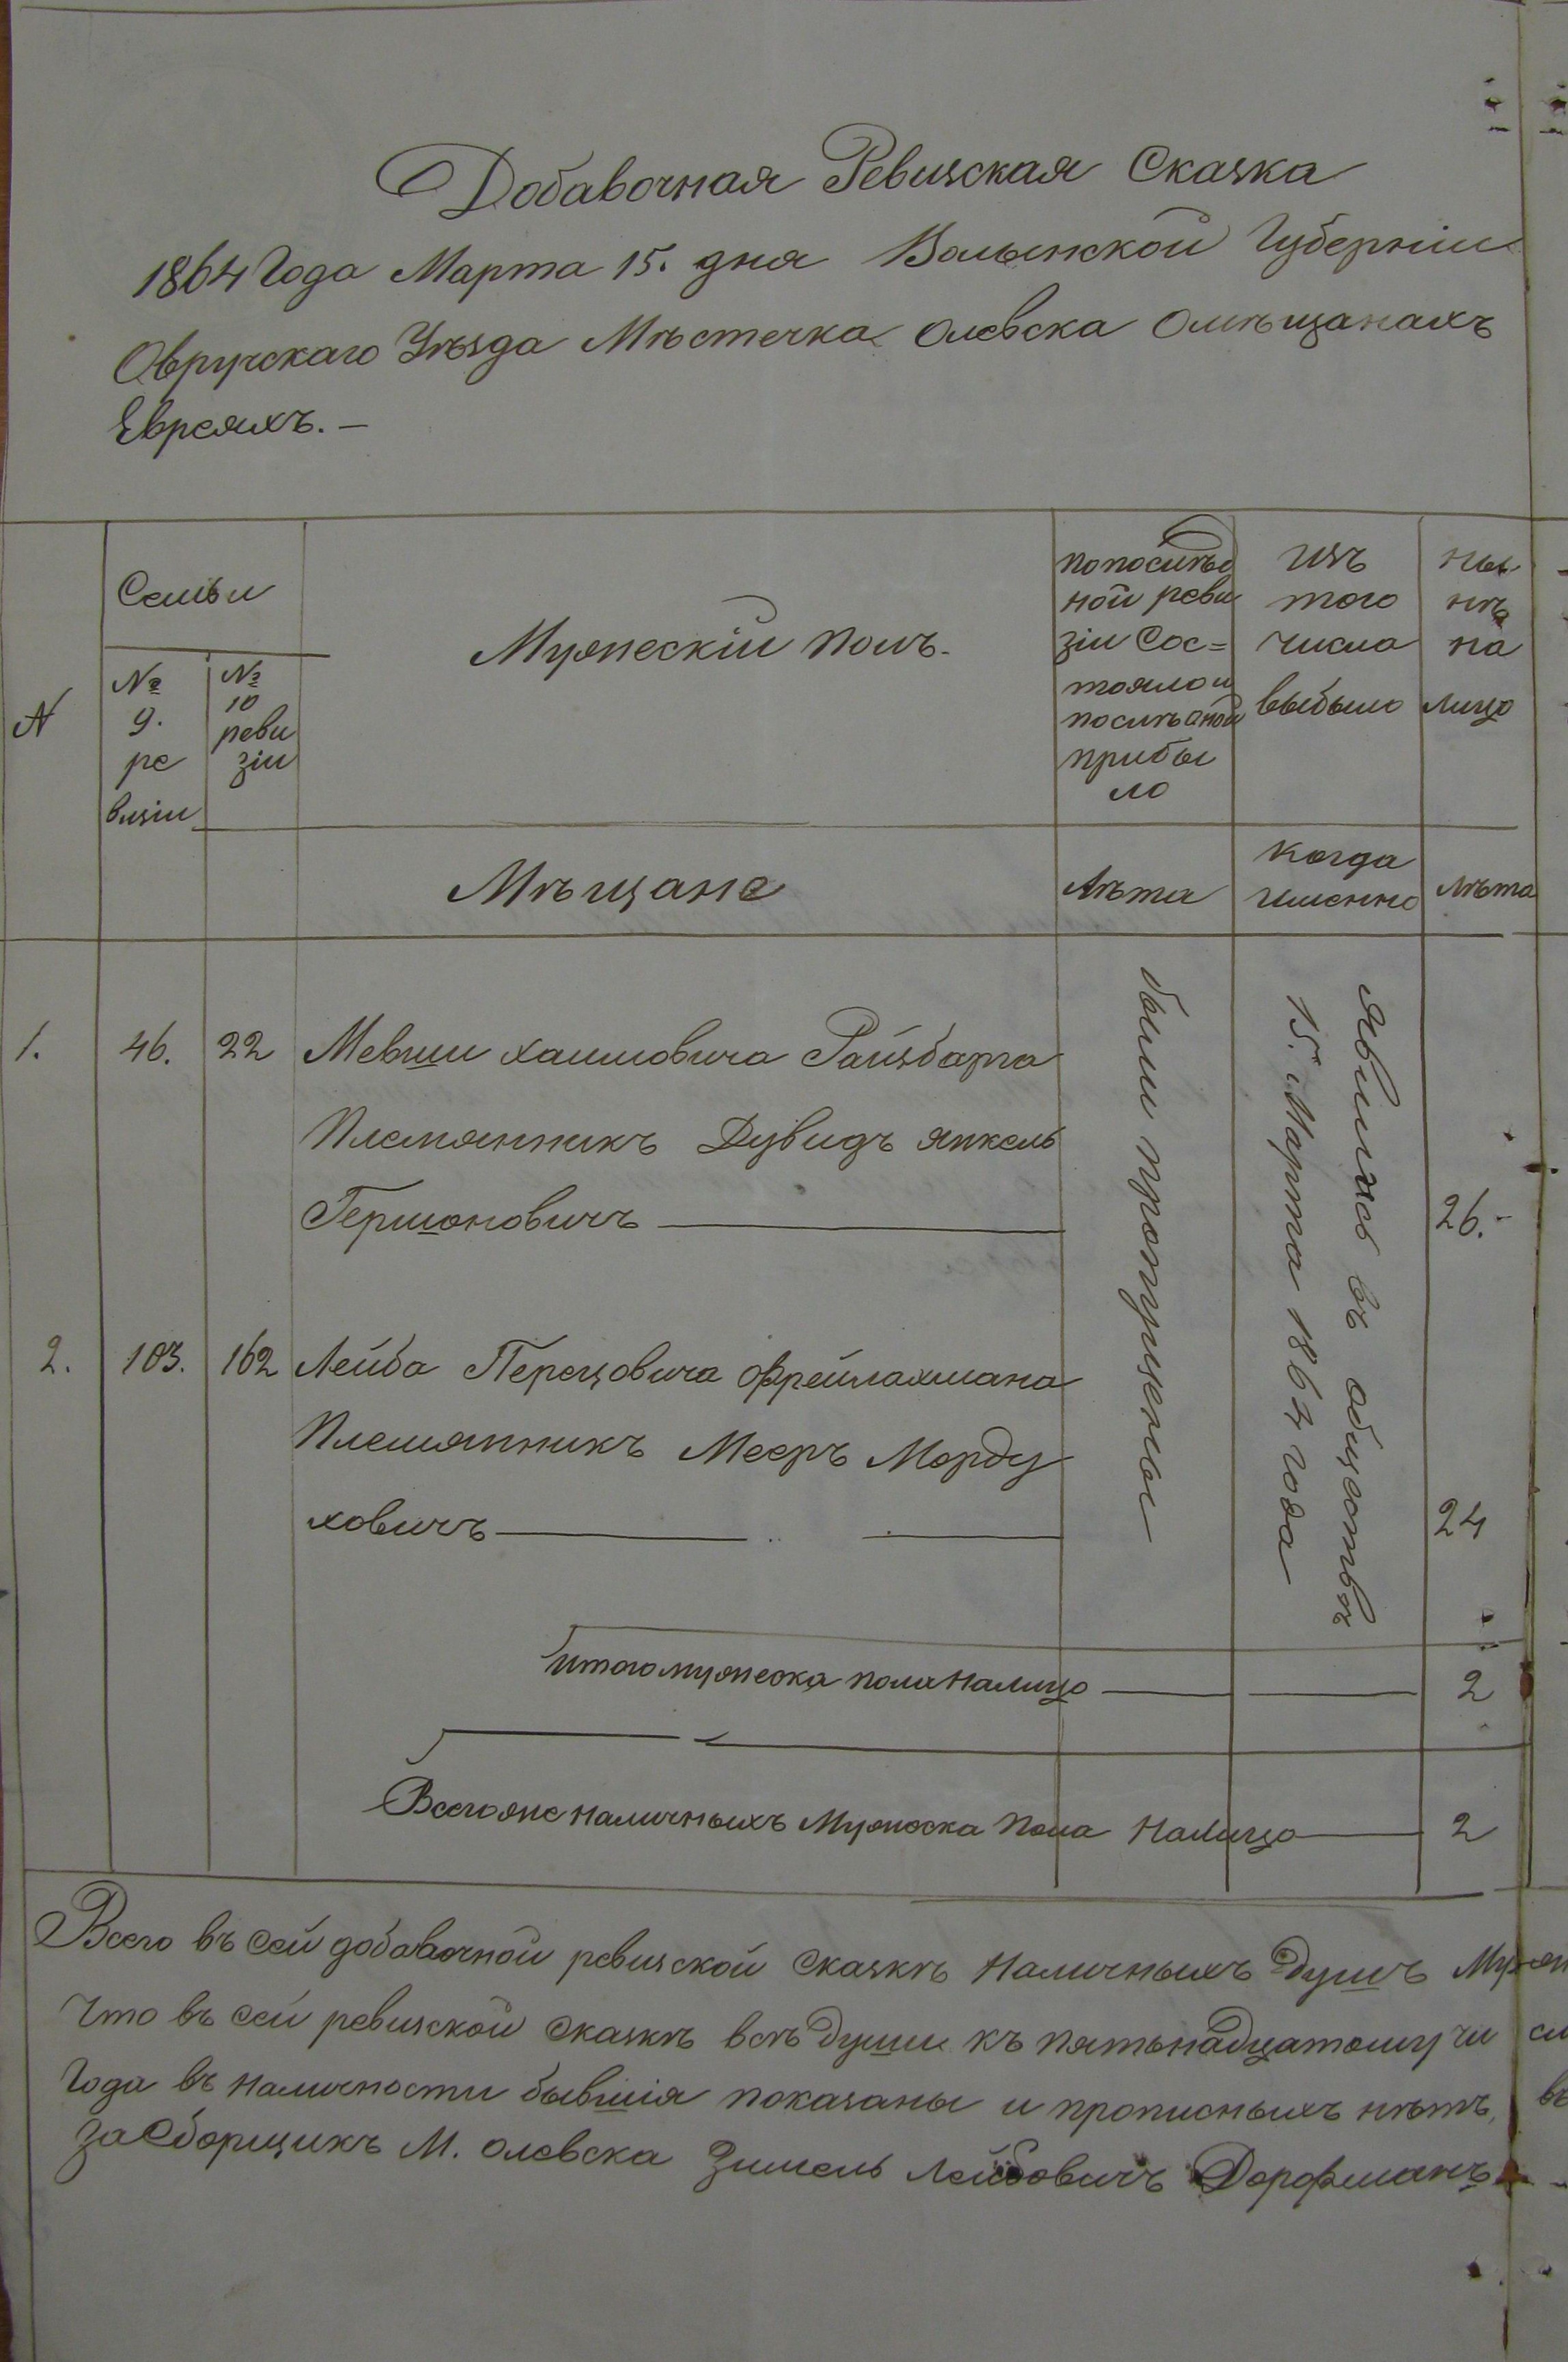 Добавочная Ревизская Сказка
1864 Года Марта 15. дня Волынской Губерніи
Овручскаго Уѣзда Мѣстечка Олевска Омѣщанахъ
Евреяхъ.—
№
Семьи
№ 9. ре визіи
№ 10 реви зіи
Мужескій полъ.
по послѣд
ной реви
зіи Сос=
тояло и
послѣ оной
прибы
ло
изъ
того
числа
выбыло
ны
нѣ
на
лицо
Мѣщане
Лѣта
когда
именно
Лѣта
1. 46. 22 Мевши Хаимовича Райзбарга
Племянникъ Дувидъ Янкель
Гершоновичъ 26.-
2. 103. 162 Лейба Перецовича Фрейлахмана
Племянникъ Мееръ Морду
ховичъ 24
были пропущены
явились въ общество
15. Марта 1864 года
Итого мужеска пола налицо 2
Всего же наличныхъ Мужеска пола налицо 2
Всего въ сей добавочной ревизской сказкѣ наличныхъ душъ Муж
Что въ сей ревизской сказкѣ всѣ души къ пятьнадцатому чи сл
Года въ наличности бывшія показаны и прописныхъ нѣтъ, въ
За Сборщикъ М. Олевска Зимель Лейбовичъ Дорфманъ